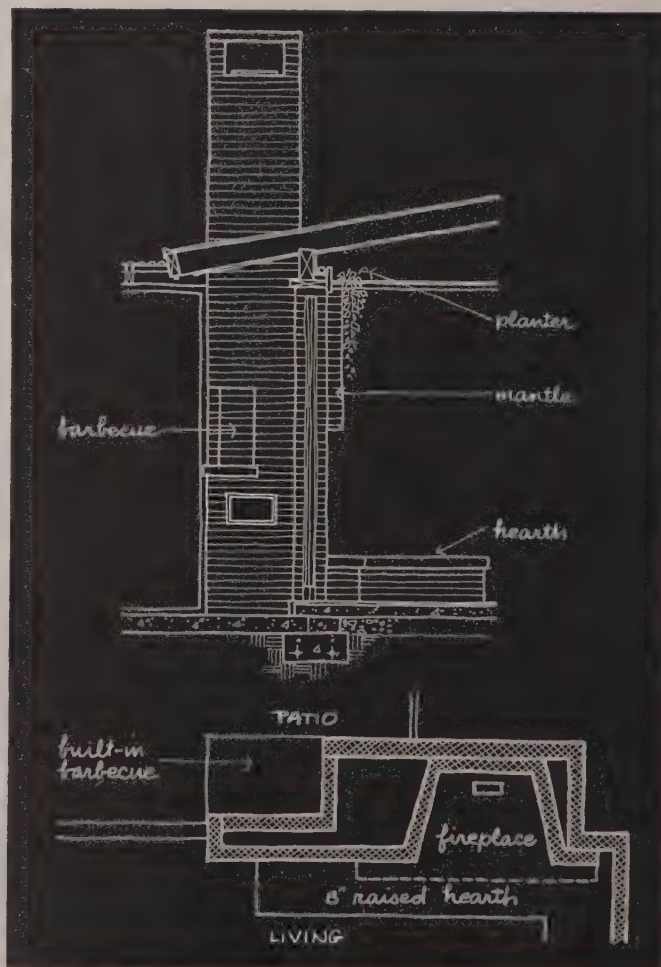 planter
mantle
barbecue
hearth
PATIO
built-in
barbecue
fireplace
8" raised hearth
LIVING